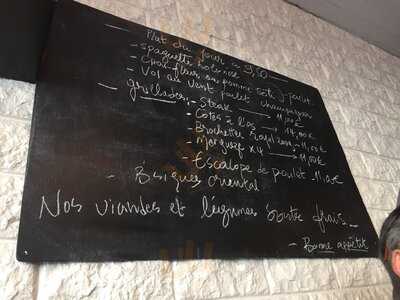 Plat du jour à 9,50
- spaguette bolonese
- choufleur ou pomme sôté } poulet
- Vol au vent poulet champignon
- grillades, - Steak → 11,00€
- Côtes à l'os → 14,00€
- Brochettes → 11,00€
- Merguez x4 → 11,00€
- Escalope de poulet 11,00€
- Bésiques oriental
Nos viandes et légumes sont frais
- Bonne appétit